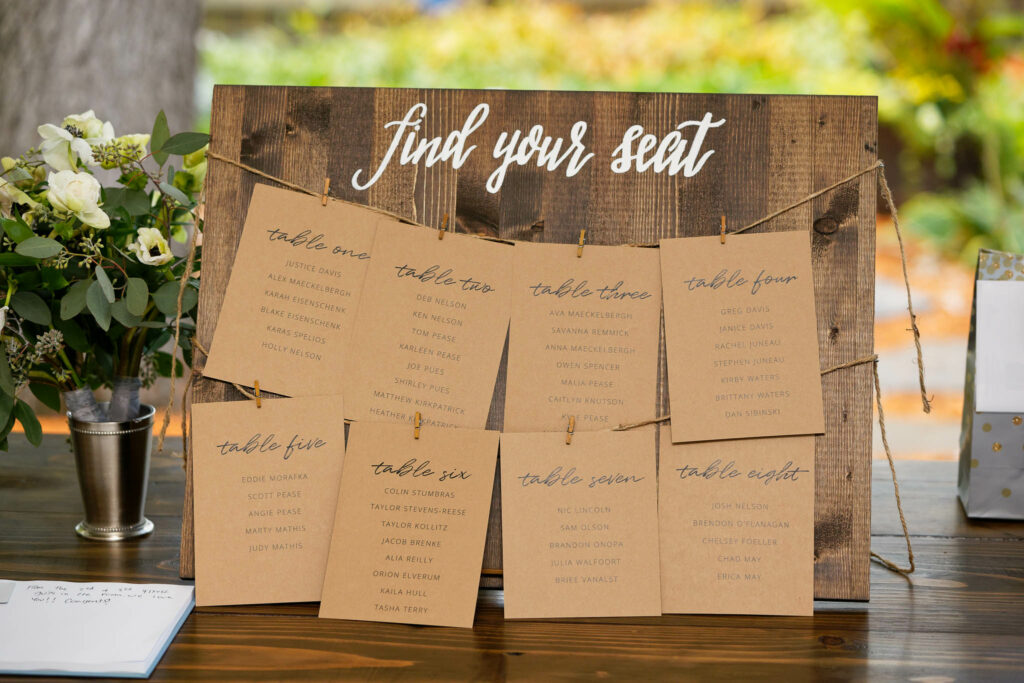 find your seat
table one
JUSTICE DAVIS
ALEX MAECKELBERGH
KARAH EISENSCHENK
BLAKE EISENSCHENK
KARAS SPELIOS
HOLLY NELSON
table two
DEB NELSON
KEN NELSON
TOM PEASE
KARLEEN PEASE
JOE PUES
SHIRLEY PUES
MATTHEW KIRKPATRICK
HEATHER KIRKPATRICK
table three
AVA MAECKELBERGH
SAVANNA REMMICK
ANNA MAECKELBERGH
OWEN SPENCER
MALIA PEASE
CAITLYN KNUTSON
KYLE PEASE
table four
GREG DAVIS
JANICE DAVIS
RACHEL JUNEAU
STEPHEN JUNEAU
KIRBY WATERS
BRITTANY WATERS
DAN SIBINSKI
table five
EDDIE MORAFKA
SCOTT PEASE
ANGIE PEASE
MARTY MATHIS
JUDY MATHIS
table six
COLIN STUMBRAS
TAYLOR STEVENS-REESE
TAYLOR KOLLITZ
JACOB BRENKE
ALIA REILLY
ORION ELVERUM
KAILA HULL
TASHA TERRY
table seven
NIC LINCOLN
SAM OLSON
BRANDON ONOPA
JULIA WALFOORT
BRIEE VANALST
table eight
JOSH NELSON
BRENDON O'FLANAGAN
CHELSEY FOELLER
CHAD MAY
ERICA MAY
the end of
in the we love
You!! Congrats!